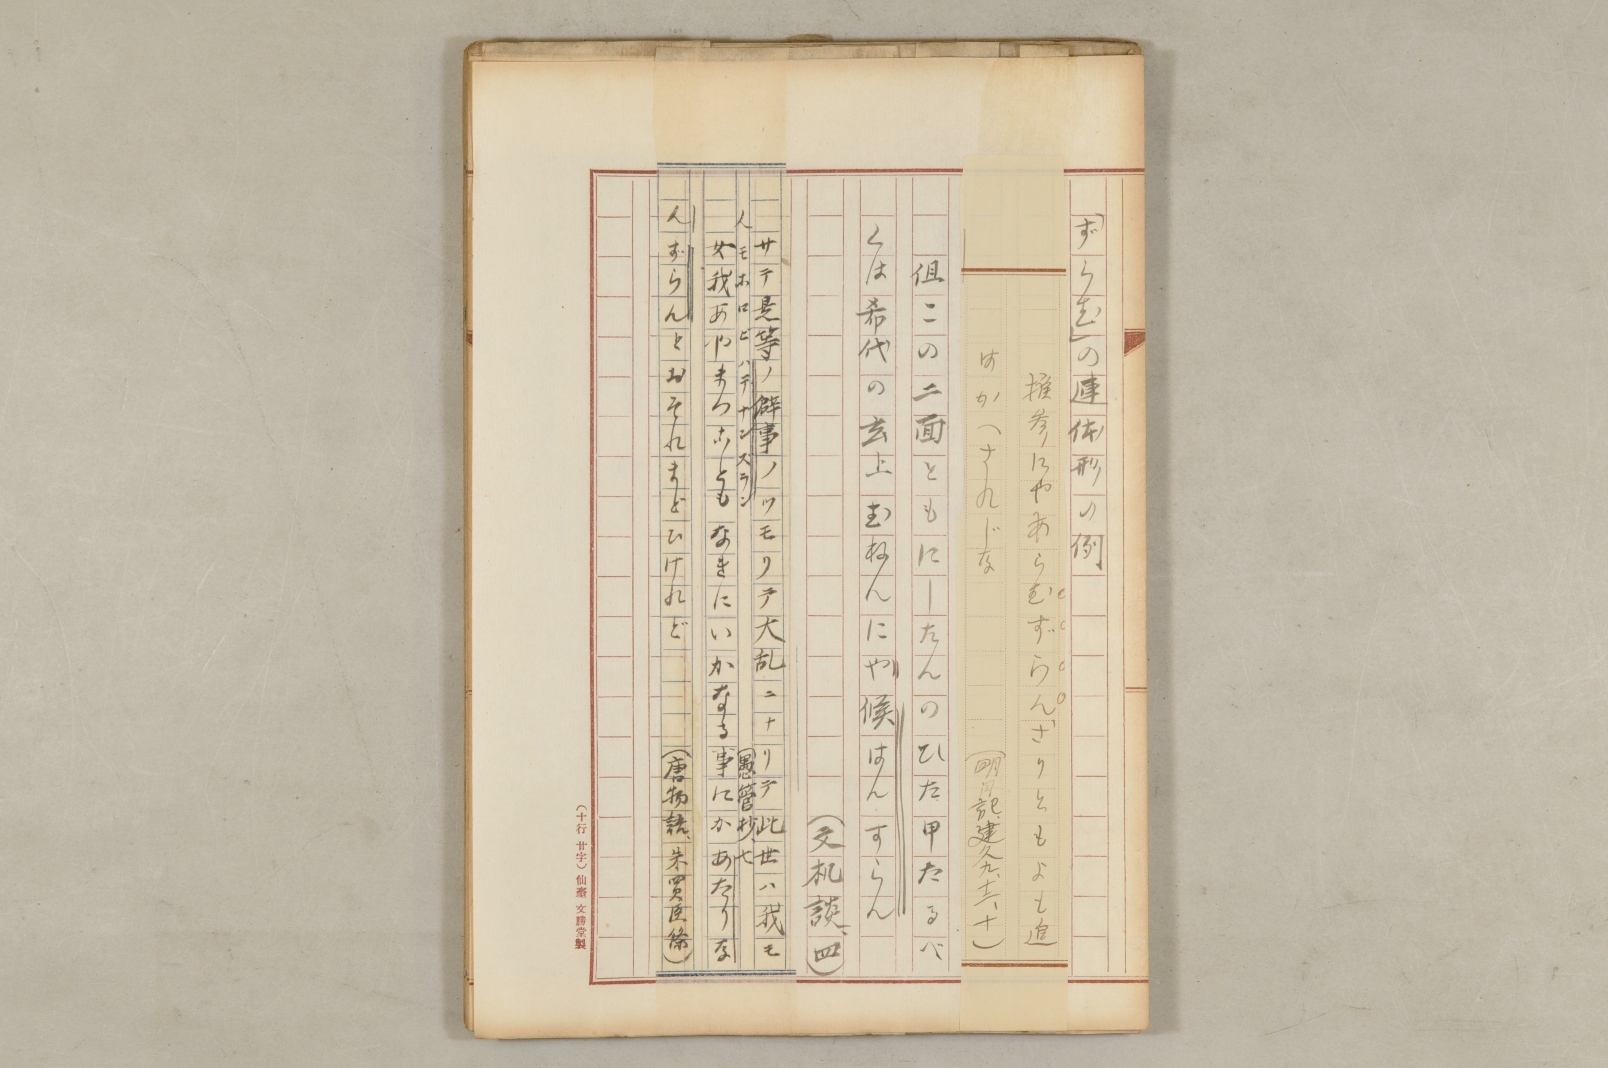 「ずらむ」の連体形の例
推参にやあらむずらんざりともよも追
はかへされじな
(明月記、建久九、十二、十)
但この二面ともにしたんのひた甲たるべ
くは希代の玄上むねんにや候はんすらん
(文机談、四)
サテ是等ノ僻事ノツモリテ大乱ニナリテ此世ハ我モ
人モホロビハテナンズラン
(愚管抄、七
女我あやまつこともなきにいかなる事にかあたりな
んずらんとおそれまどひけれど
(唐物語、朱買臣條)
(十行 廿字) 仙臺 文勝堂製